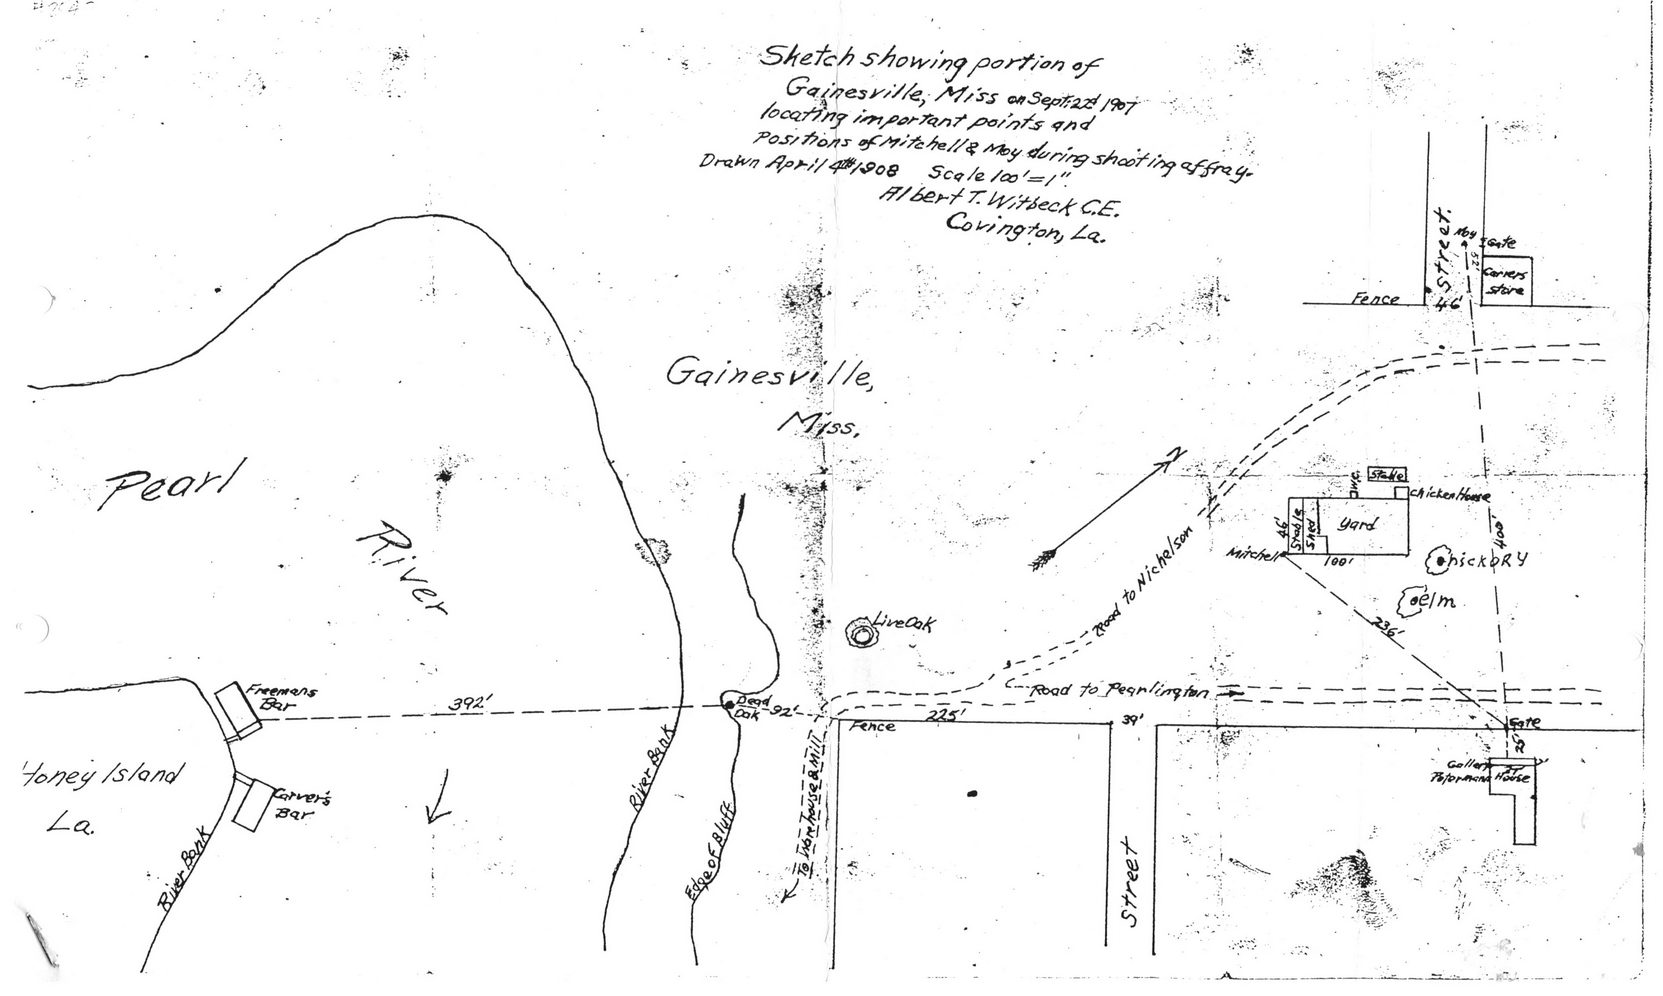 Sketch showing portion of
Gainesville, Miss on Sept. 2nd 1907
locating important points and
Positions of Mitchell & Moy during shooting affray.
Drawn April 4th 1908 Scale 100' = 1".
Albert T. Witbeck C.E.
Covington, La.
Street.
Moy
Gate
52'
Carvers
store
46'
Fence
Gainesville,
Miss.
Pearl
River
N
Stable
W.C.
Chicken House
46'
Stable
Shed
Yard
Mitchell
100'
400'
hickory
elm
236'
Road to Nichelson
Live Oak
Road to Pearlington
Freemans
Bar
392'
Dead
Oak
92'
Fence
225'
39'
Gate
25'
Gallery
House
Honey Island
La.
Carver's
Bar
River Bank
River Bank
Edge of Bluff
To Warehouse & Mill
Street